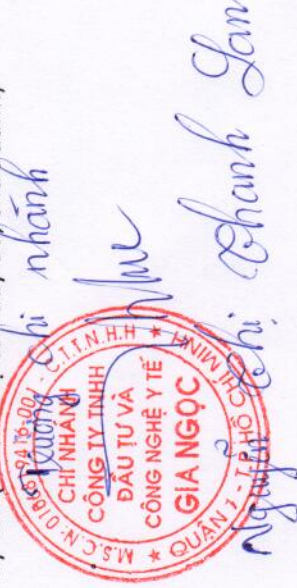 Trưởng chi nhánh
M.S.C.N: 0106
9416-00
- C.T.T.N.H.H
CHI NHÁNH
CÔNG TY TNHH
ĐẦU TƯ VÀ
CÔNG NGHỆ Y TẾ
GIA NGỌC
QUẬN 1 - T.P HỒ CHÍ MINH
Nguyễn Thị Thanh Lan